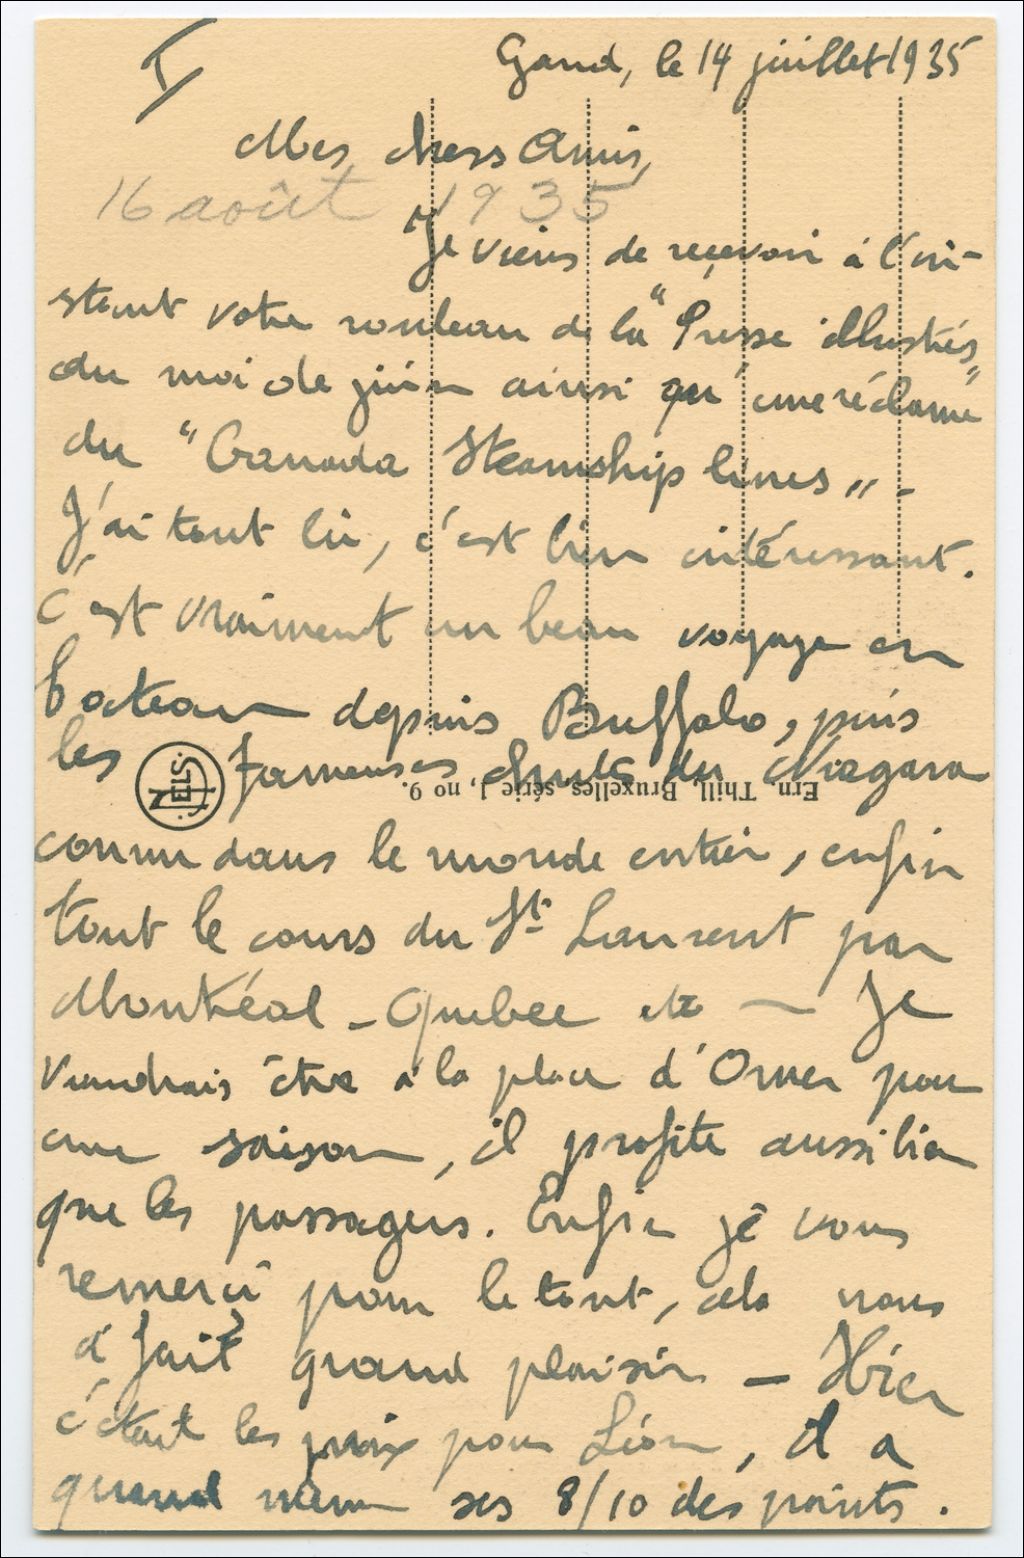 I
Gand, le 14 juillet 1935
Mes chers Amis,
16 août 1935
Je viens de reçevoir à l'in-
stant votre rouleau de la "Presse illustrés"
du moi de juin ainsi qu'une réclame
du "Canada Steamship lines". -
J'ai tout lu, c'est bien intéressant.
C'est vraiment un beau voyage en
bateau depuis Buffalo, puis
les fameuses chutes du Niagara
NELS
Ern. Thill, Bruxelles, série 1, no 9.
connu dans le monde entier, enfin
tout le cours du St. Laurent par
Montréal - Quebec etc - Je
voudrais être à la place d'Omer pour
une saison, il profite aussi bien
que les passagers. Enfin je vous
remerci pour le tout, cela nous
a fait grand plaisir - Hier
c'était les prix pour Léon, il a
quand même ses 8/10 des points.